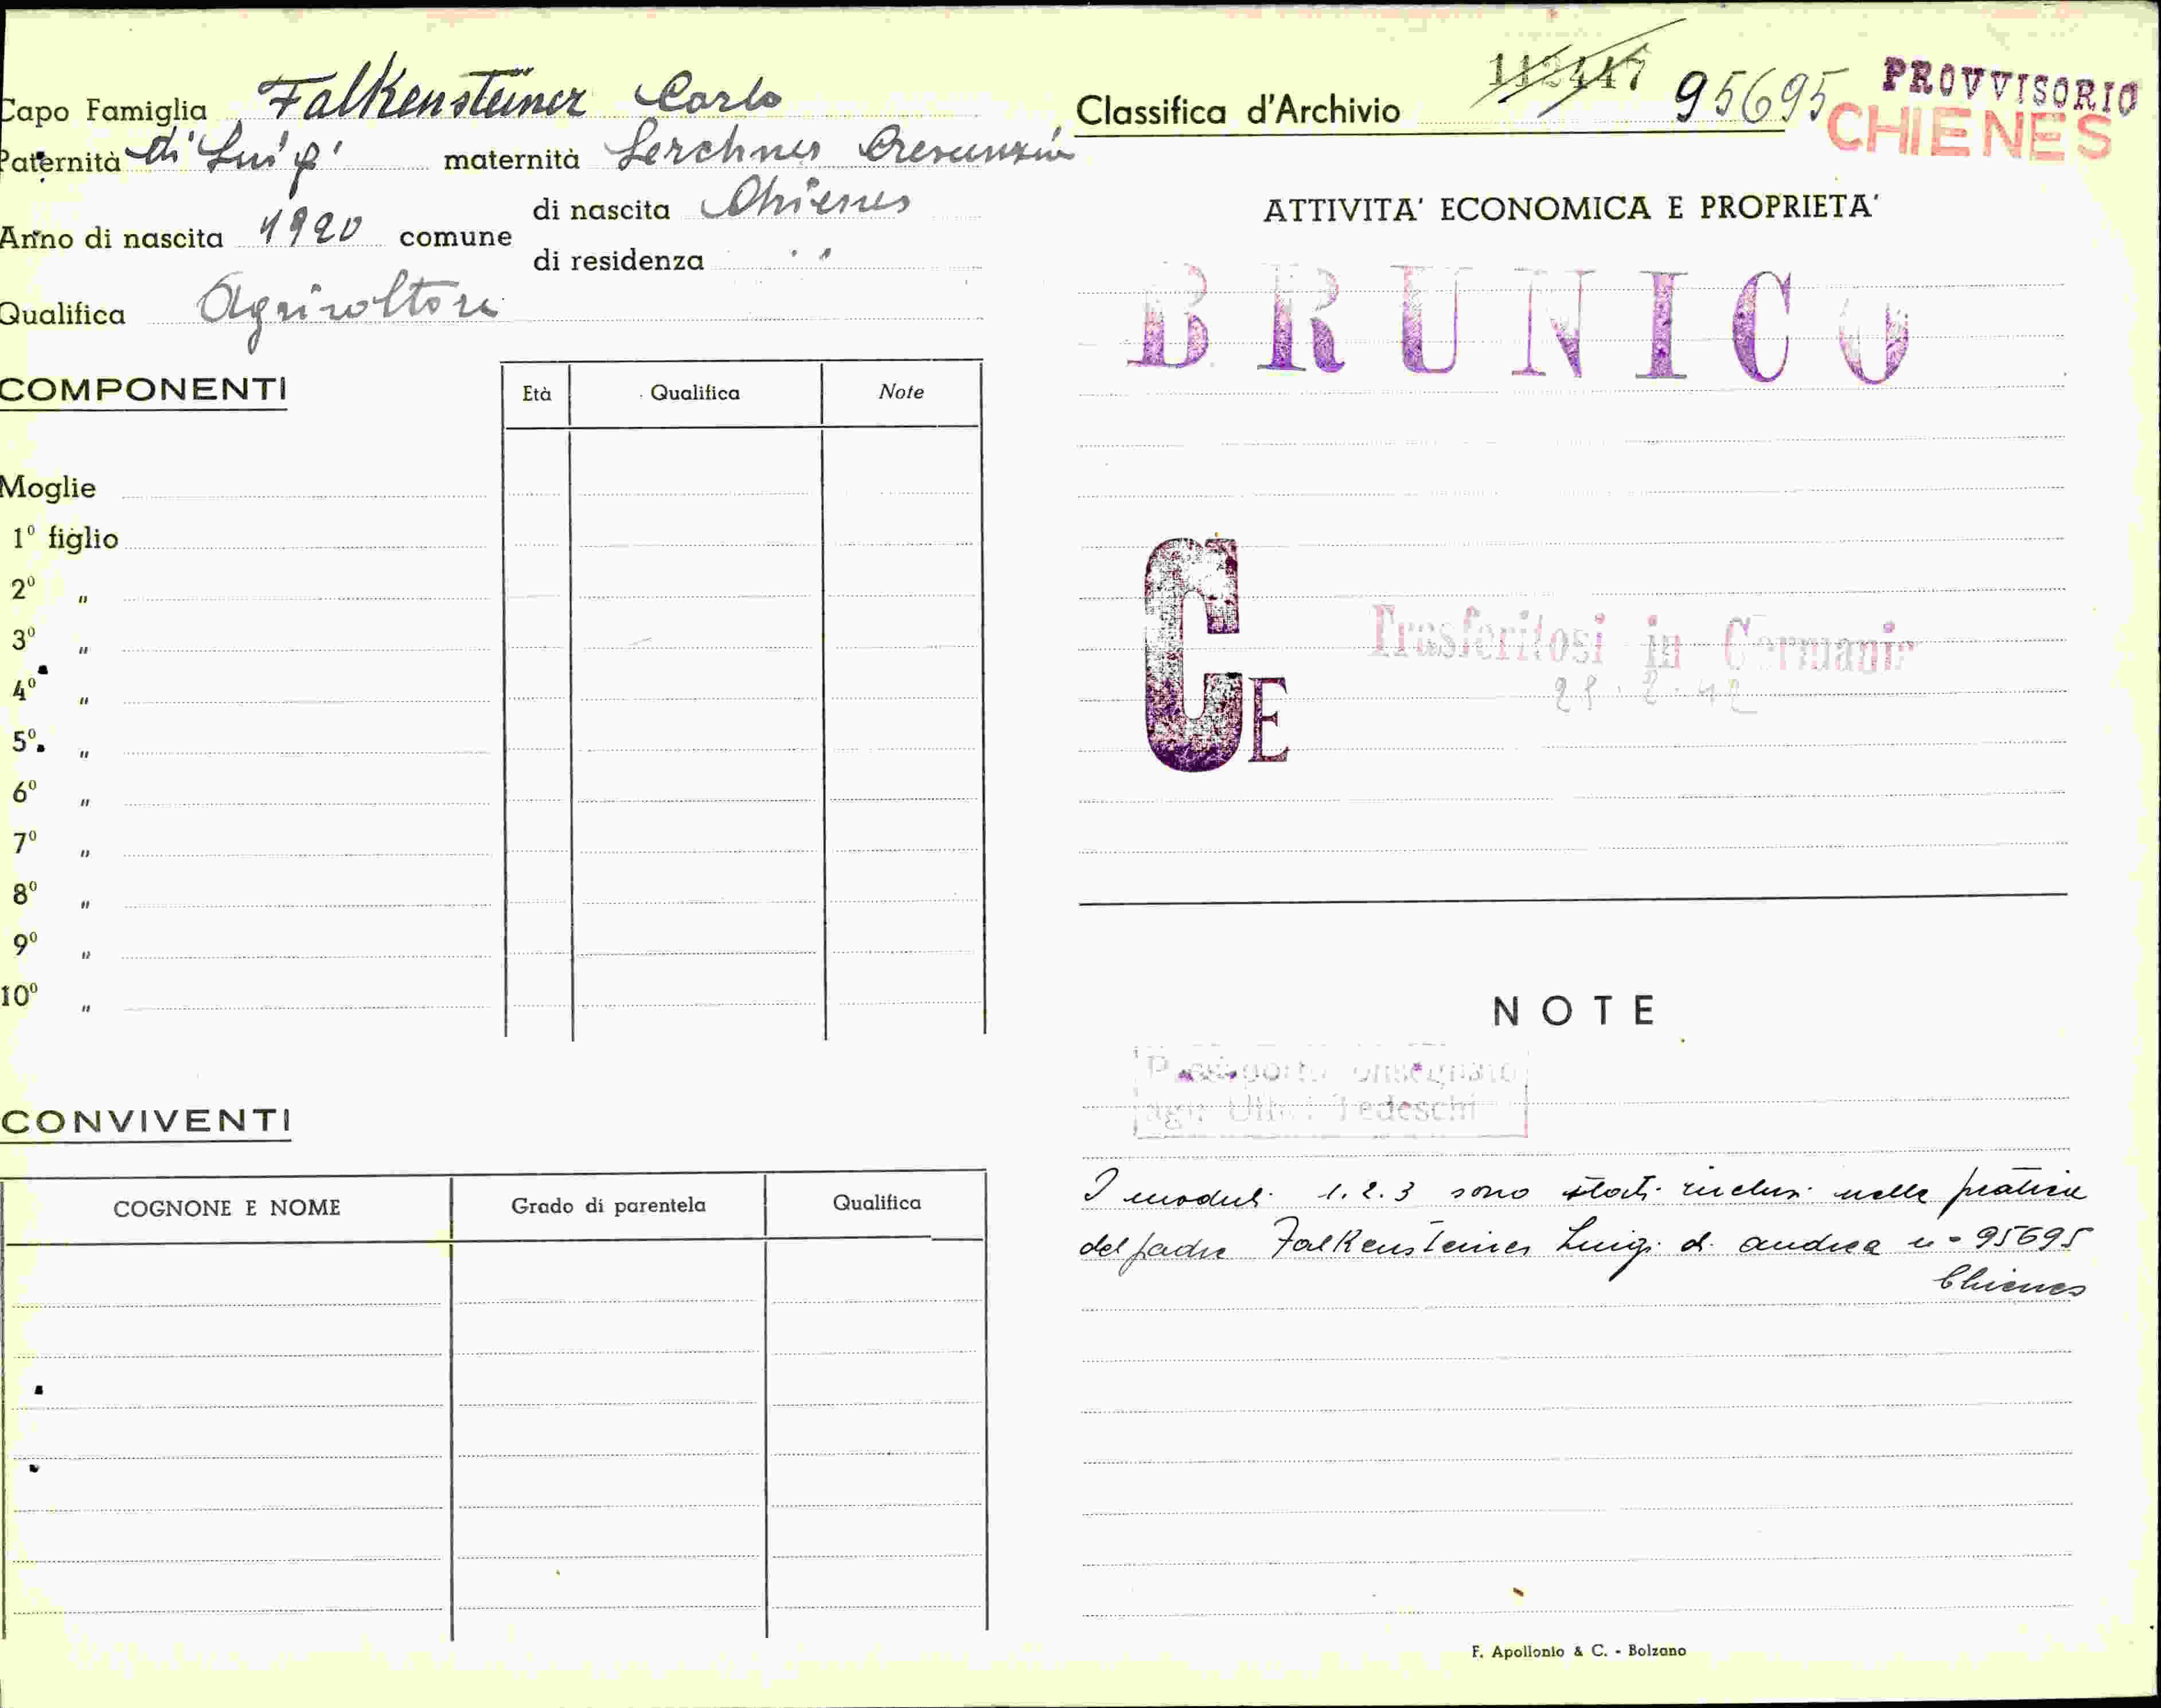 Capo Famiglia Falkensteiner Carlo
Paternità di Luigi maternità Lerchner Crescenzia
Anno di nascita 1920 comune di nascita Chienes
di residenza "
Qualifica Agricoltore
COMPONENTI
Età Qualifica Note
Moglie
1º figlio
2º "
3º "
4º "
5º "
6º "
7º "
8º "
9º "
10º "
CONVIVENTI
COGNONE E NOME Grado di parentela Qualifica
Classifica d'Archivio 112447 95695 PROVVISORIO
CHIENES
ATTIVITA' ECONOMICA E PROPRIETA'
BRUNICO
CE
Trasferitosi in Germania
NOTE
Passaporto consegnato
agli Uffici Tedeschi
I moduli 1.2.3 sono stati inclusi nella pratica
del padre Falkensteiner Luigi di Andrea n= 95695
Chienes
F. Apollonio & C. - Bolzano